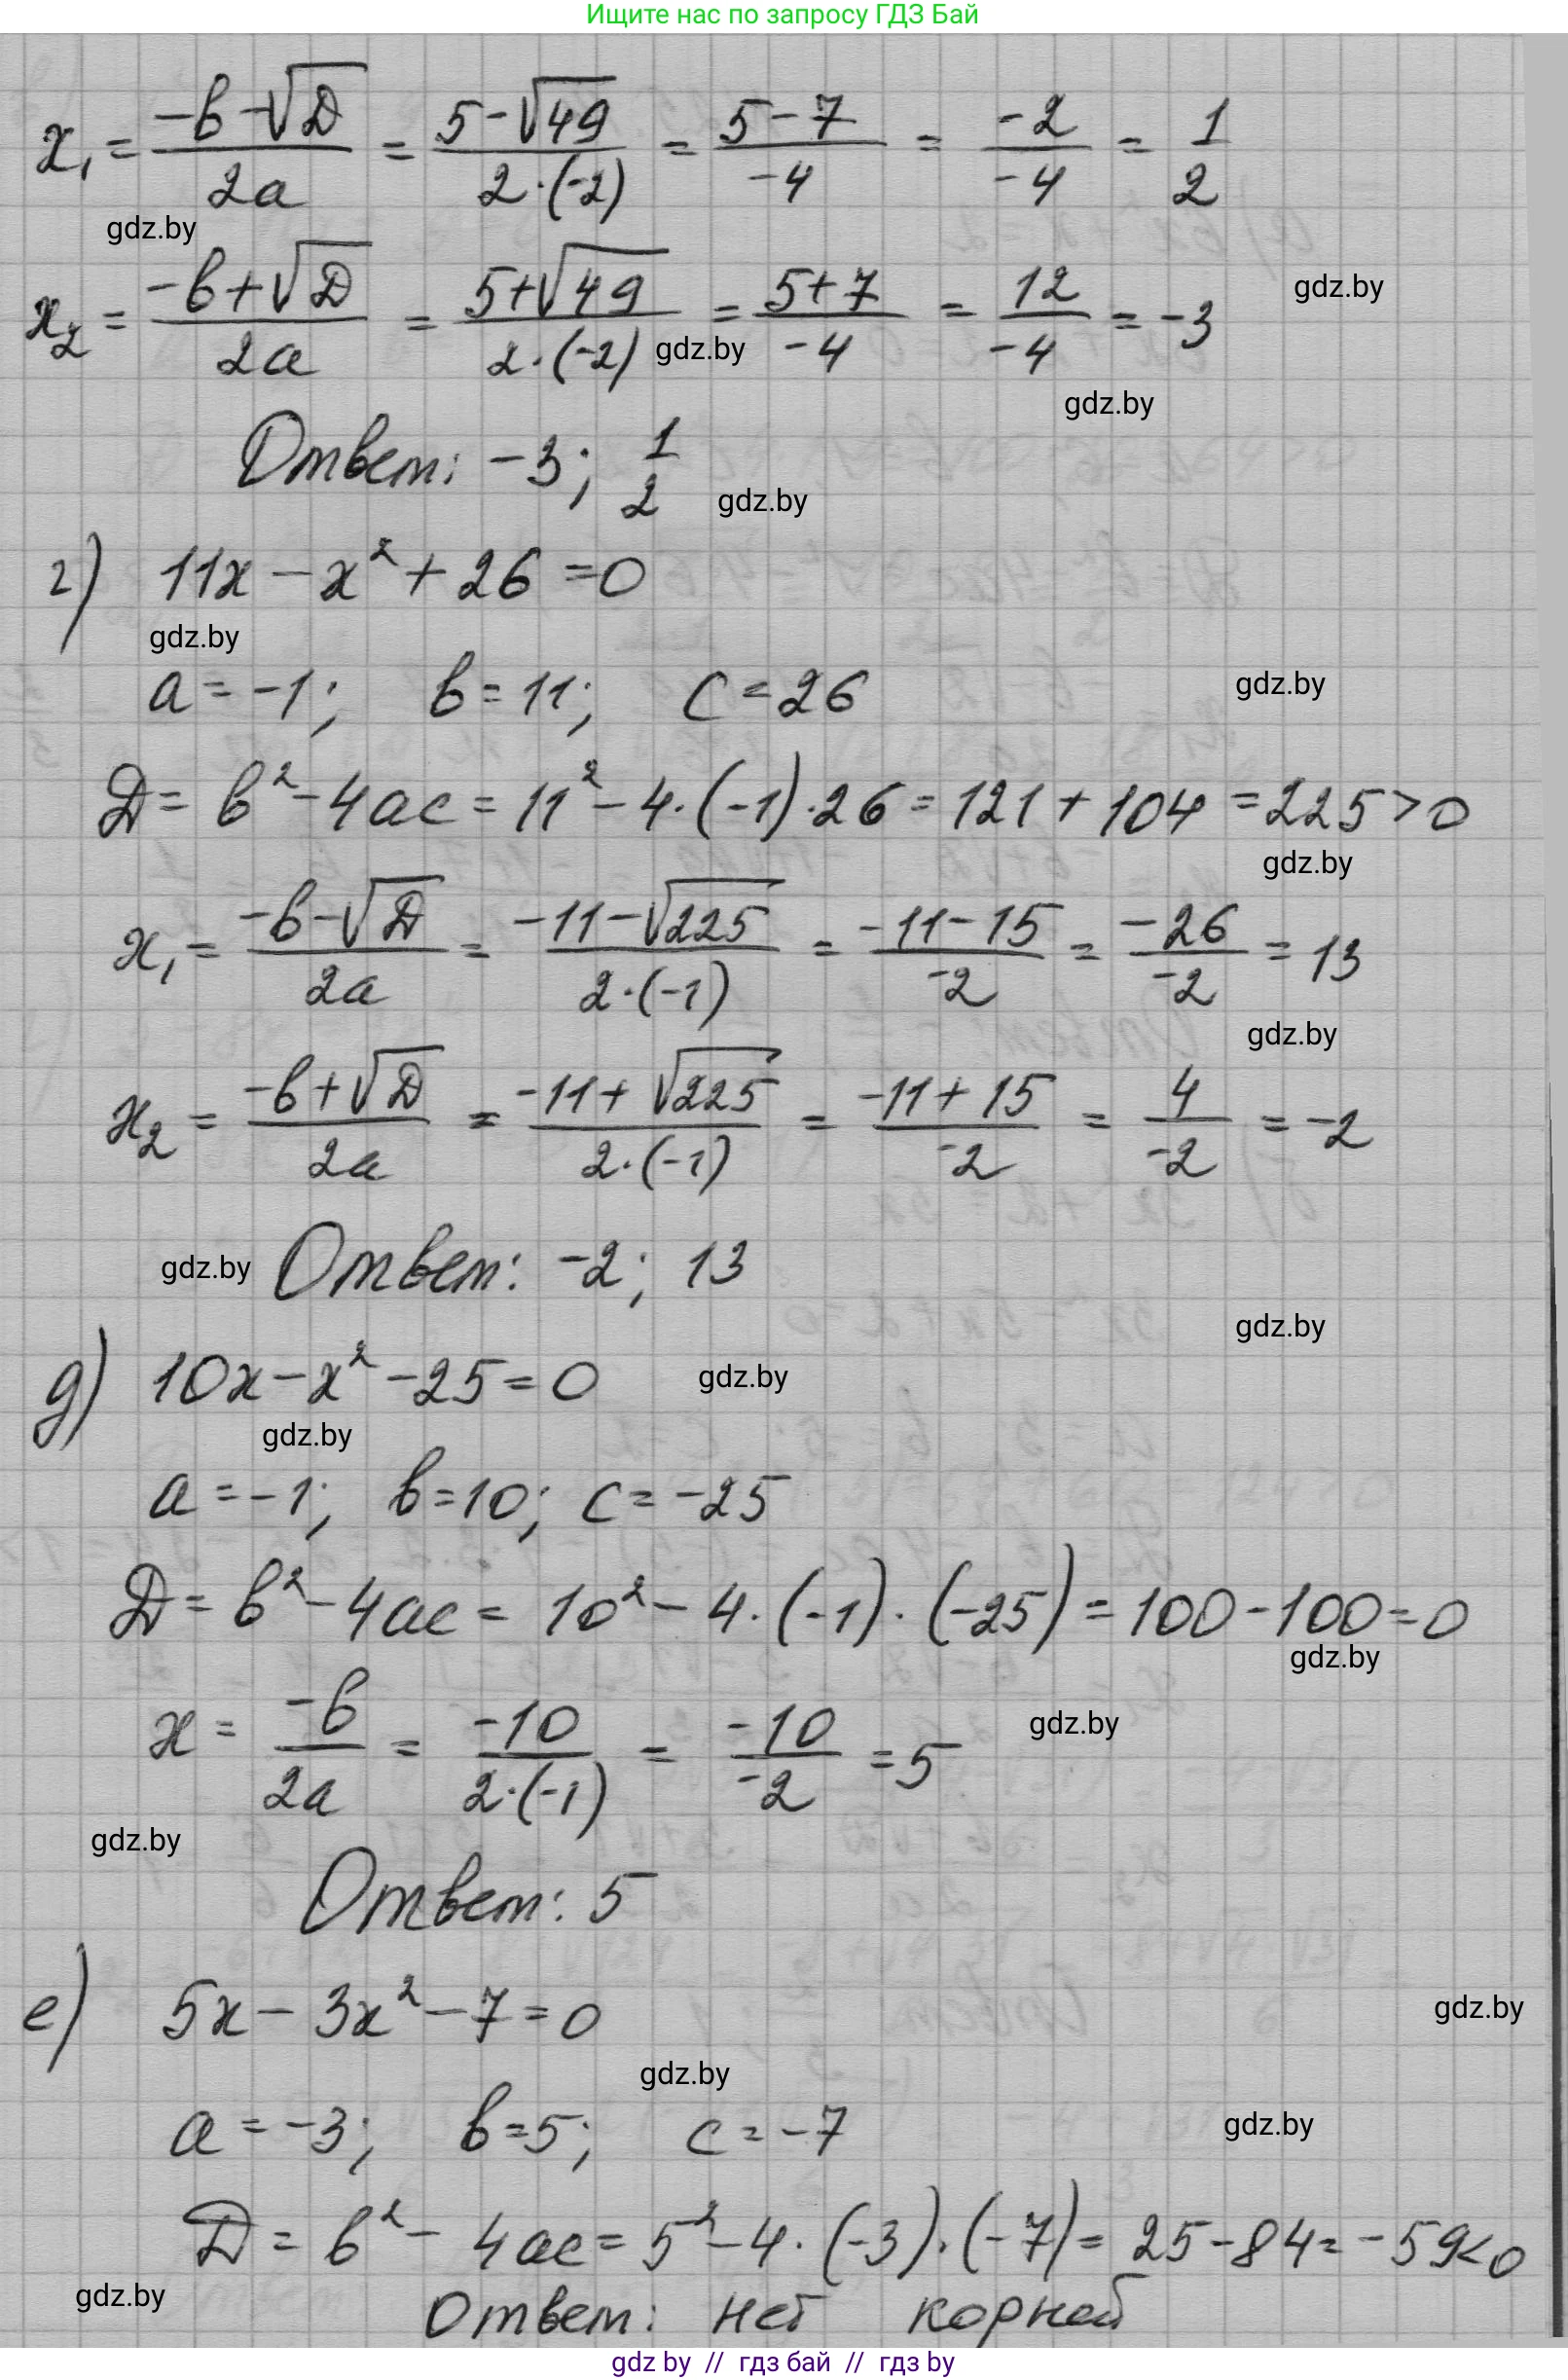 Ищите нас по запросу ГДЗ Бай
x₁ = (-b-√D)/(2a) = (5-√49)/(2·(-2)) = (5-7)/(-4) = (-2)/(-4) = 1/2
gdz.by
x₂ = (-b+√D)/(2a) = (5+√49)/(2·(-2)) = (5+7)/(-4) = 12/(-4) = -3
gdz.by
gdz.by
gdz.by
Ответ: -3; 1/2
gdz.by
г) 11x - x² + 26 = 0
gdz.by
a = -1; b = 11; c = 26
gdz.by
D = b² - 4ac = 11² - 4·(-1)·26 = 121 + 104 = 225 > 0
gdz.by
x₁ = (-b-√D)/(2a) = (-11-√225)/(2·(-1)) = (-11-15)/(-2) = (-26)/(-2) = 13
gdz.by
x₂ = (-b+√D)/(2a) = (-11+√225)/(2·(-1)) = (-11+15)/(-2) = 4/(-2) = -2
gdz.by Ответ: -2; 13
gdz.by
д) 10x - x² - 25 = 0
gdz.by
gdz.by
a = -1; b = 10; c = -25
D = b² - 4ac = 10² - 4·(-1)·(-25) = 100 - 100 = 0
gdz.by
x = (-b)/(2a) = (-10)/(2·(-1)) = (-10)/(-2) = 5
gdz.by
gdz.by
Ответ: 5
е) 5x - 3x² - 7 = 0
gdz.by
gdz.by
a = -3; b = 5; c = -7
gdz.by
D = b² - 4ac = 5² - 4·(-3)·(-7) = 25 - 84 = -59 < 0
gdz.by
Ответ: нет корней
gdz by // гдз бай // гдз by